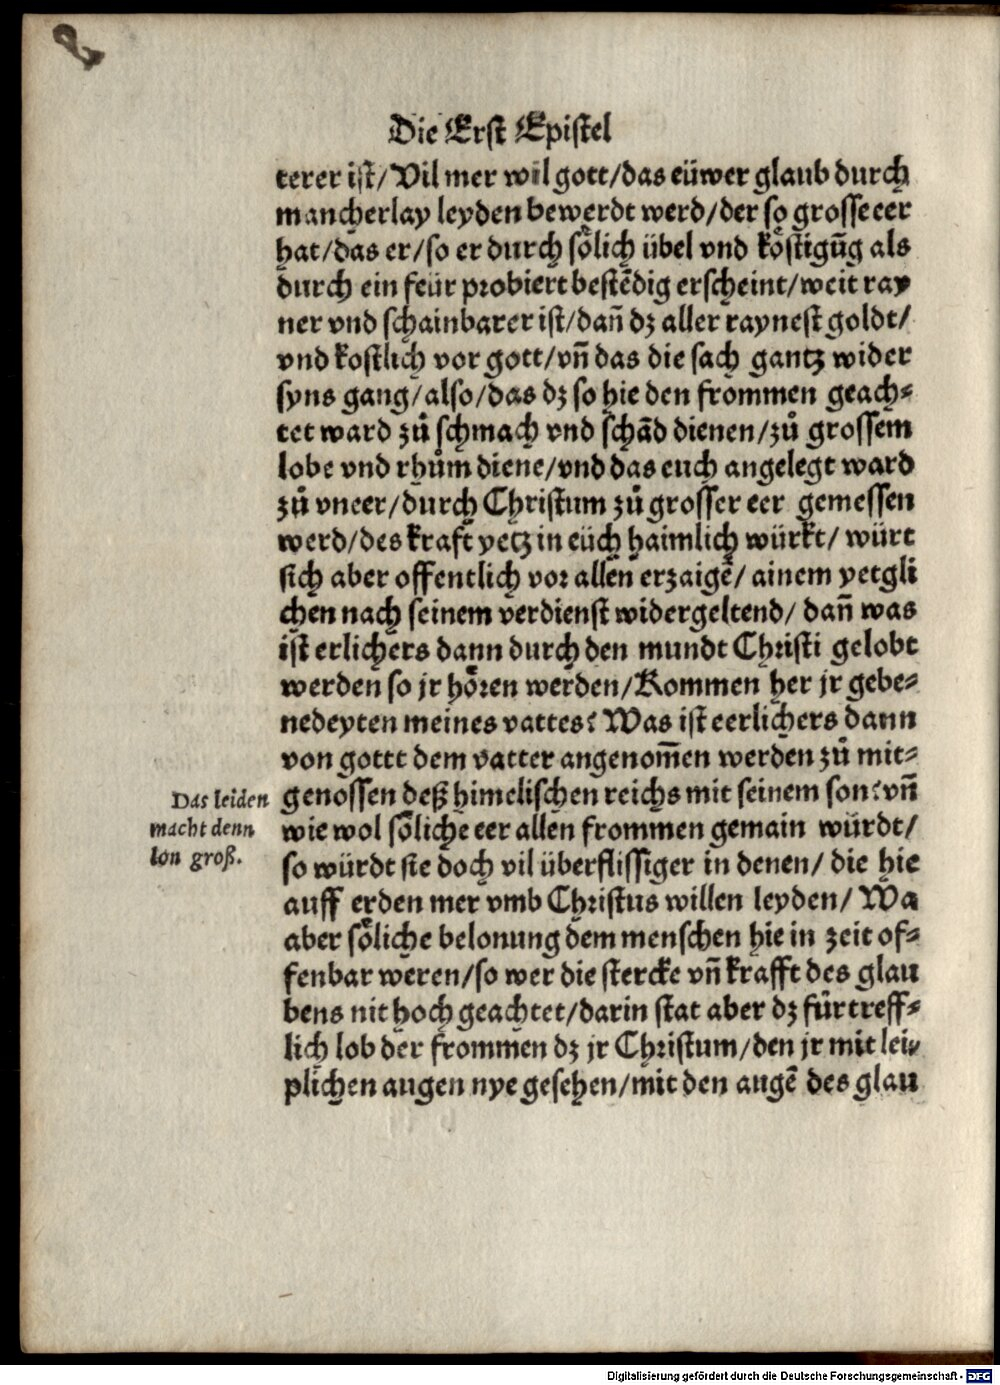 Die Erst Epistel
terer ist/ Vil mer wil gott/das eüwer glaub durch
mancherlay leyden bewerdt werd/der so grosse eer
hat/das er/so er durch soͤlich übel vnd koͤstigūg als
durch ein feür probiert bestēdig erscheint/weit ray
ner vnd schainbarer ist/dañ dz aller raynest goldt/
vnd kostlich vor gott/vñ das die sach gantz wider
syns gang/also/das dz so hie den frommen geach⸗
tet ward zuͦ schmach vnd schād dienen/zuͦ grossem
lobe vnd rhuͦm diene/vnd das euch angelegt ward
zuͦ vneer/durch Christum zuͦ grosser eer gemessen
werd/des kraft yetz in eüch haimlich würkt/ würt
sich aber offentlich vor allen erzaigē/ ainem yetgli
chen nach seinem verdienst widergeltend/ dañ was
ist erlichers dann durch den mundt Christi gelobt
werden so jr hoͤren werden/Kommen her jr gebe⸗
nedeyten meines vattes? Was ist eerlichers dann
von gottt dem vatter angenom̄en werden zuͦ mit⸗
genossen deß himelischen reichs mit seinem son? vñ
wie wol soͤliche eer allen frommen gemain würdt/
so würdt sie doch vil überflissiger in denen/ die hie
auff erden mer vmb Christus willen leyden/ Wa
aber soͤliche belonung dem menschen hie in zeit of⸗
fenbar weren/so wer die stercke vñ krafft des glau
bens nit hoch geachtet/darin stat aber dz fürtreff⸗
lich lob der frommen dz jr Christum/den jr mit lei⸗
plichen augen nye gesehen/mit den augē des glau
Das leiden
macht denn
lon groß.
Digitalisierung gefördert durch die Deutsche Forschungsgemeinschaft - DFG